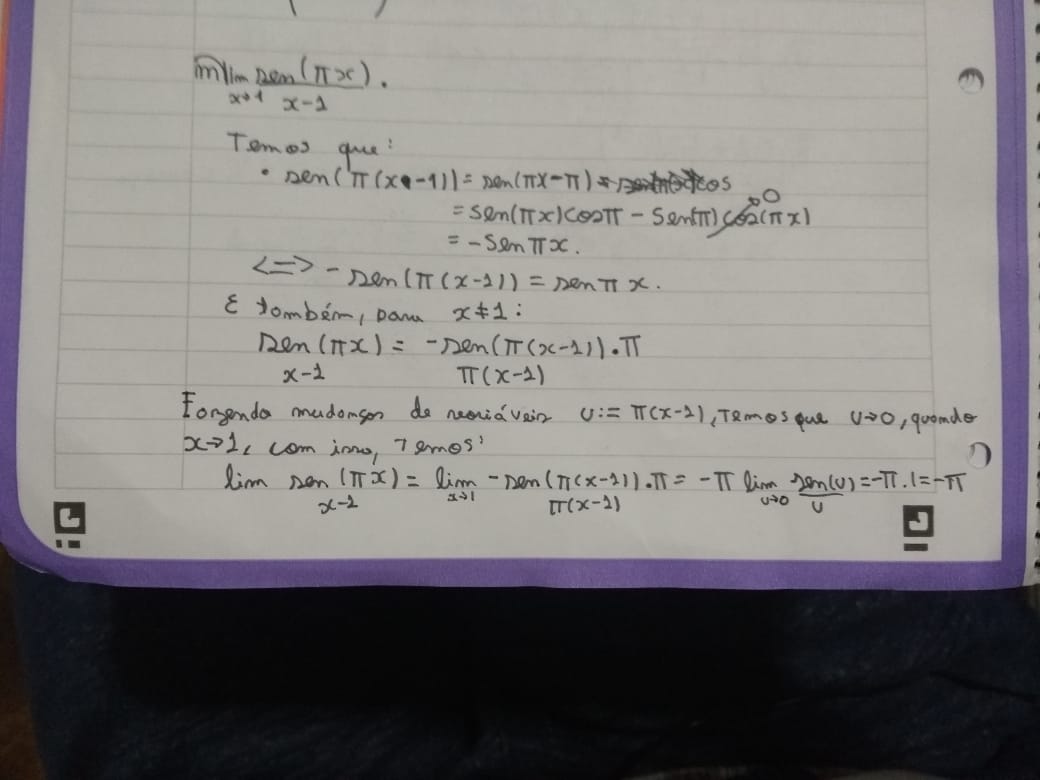 m) lim sen(πx) .
x→1 x-1
Temos que:
• sen(π(x-1)) = sen(πx-π) = cos
= sen(πx)cosπ - sen(π)cos(πx) 0
= -sen πx.
<=> -sen(π(x-1)) = sen π x.
E também, para x≠1:
sen(πx) = -sen(π(x-1)).π
x-1 π(x-1)
Fazendo mudanças de variáveis u:= π(x-1), temos que u→0, quando
x→1, com isso, temos:
lim sen (πx) = lim -sen(π(x-1)).π = -π lim sen(u) = -π.1 = -π
x-1 x→1 π(x-1) u→0 u